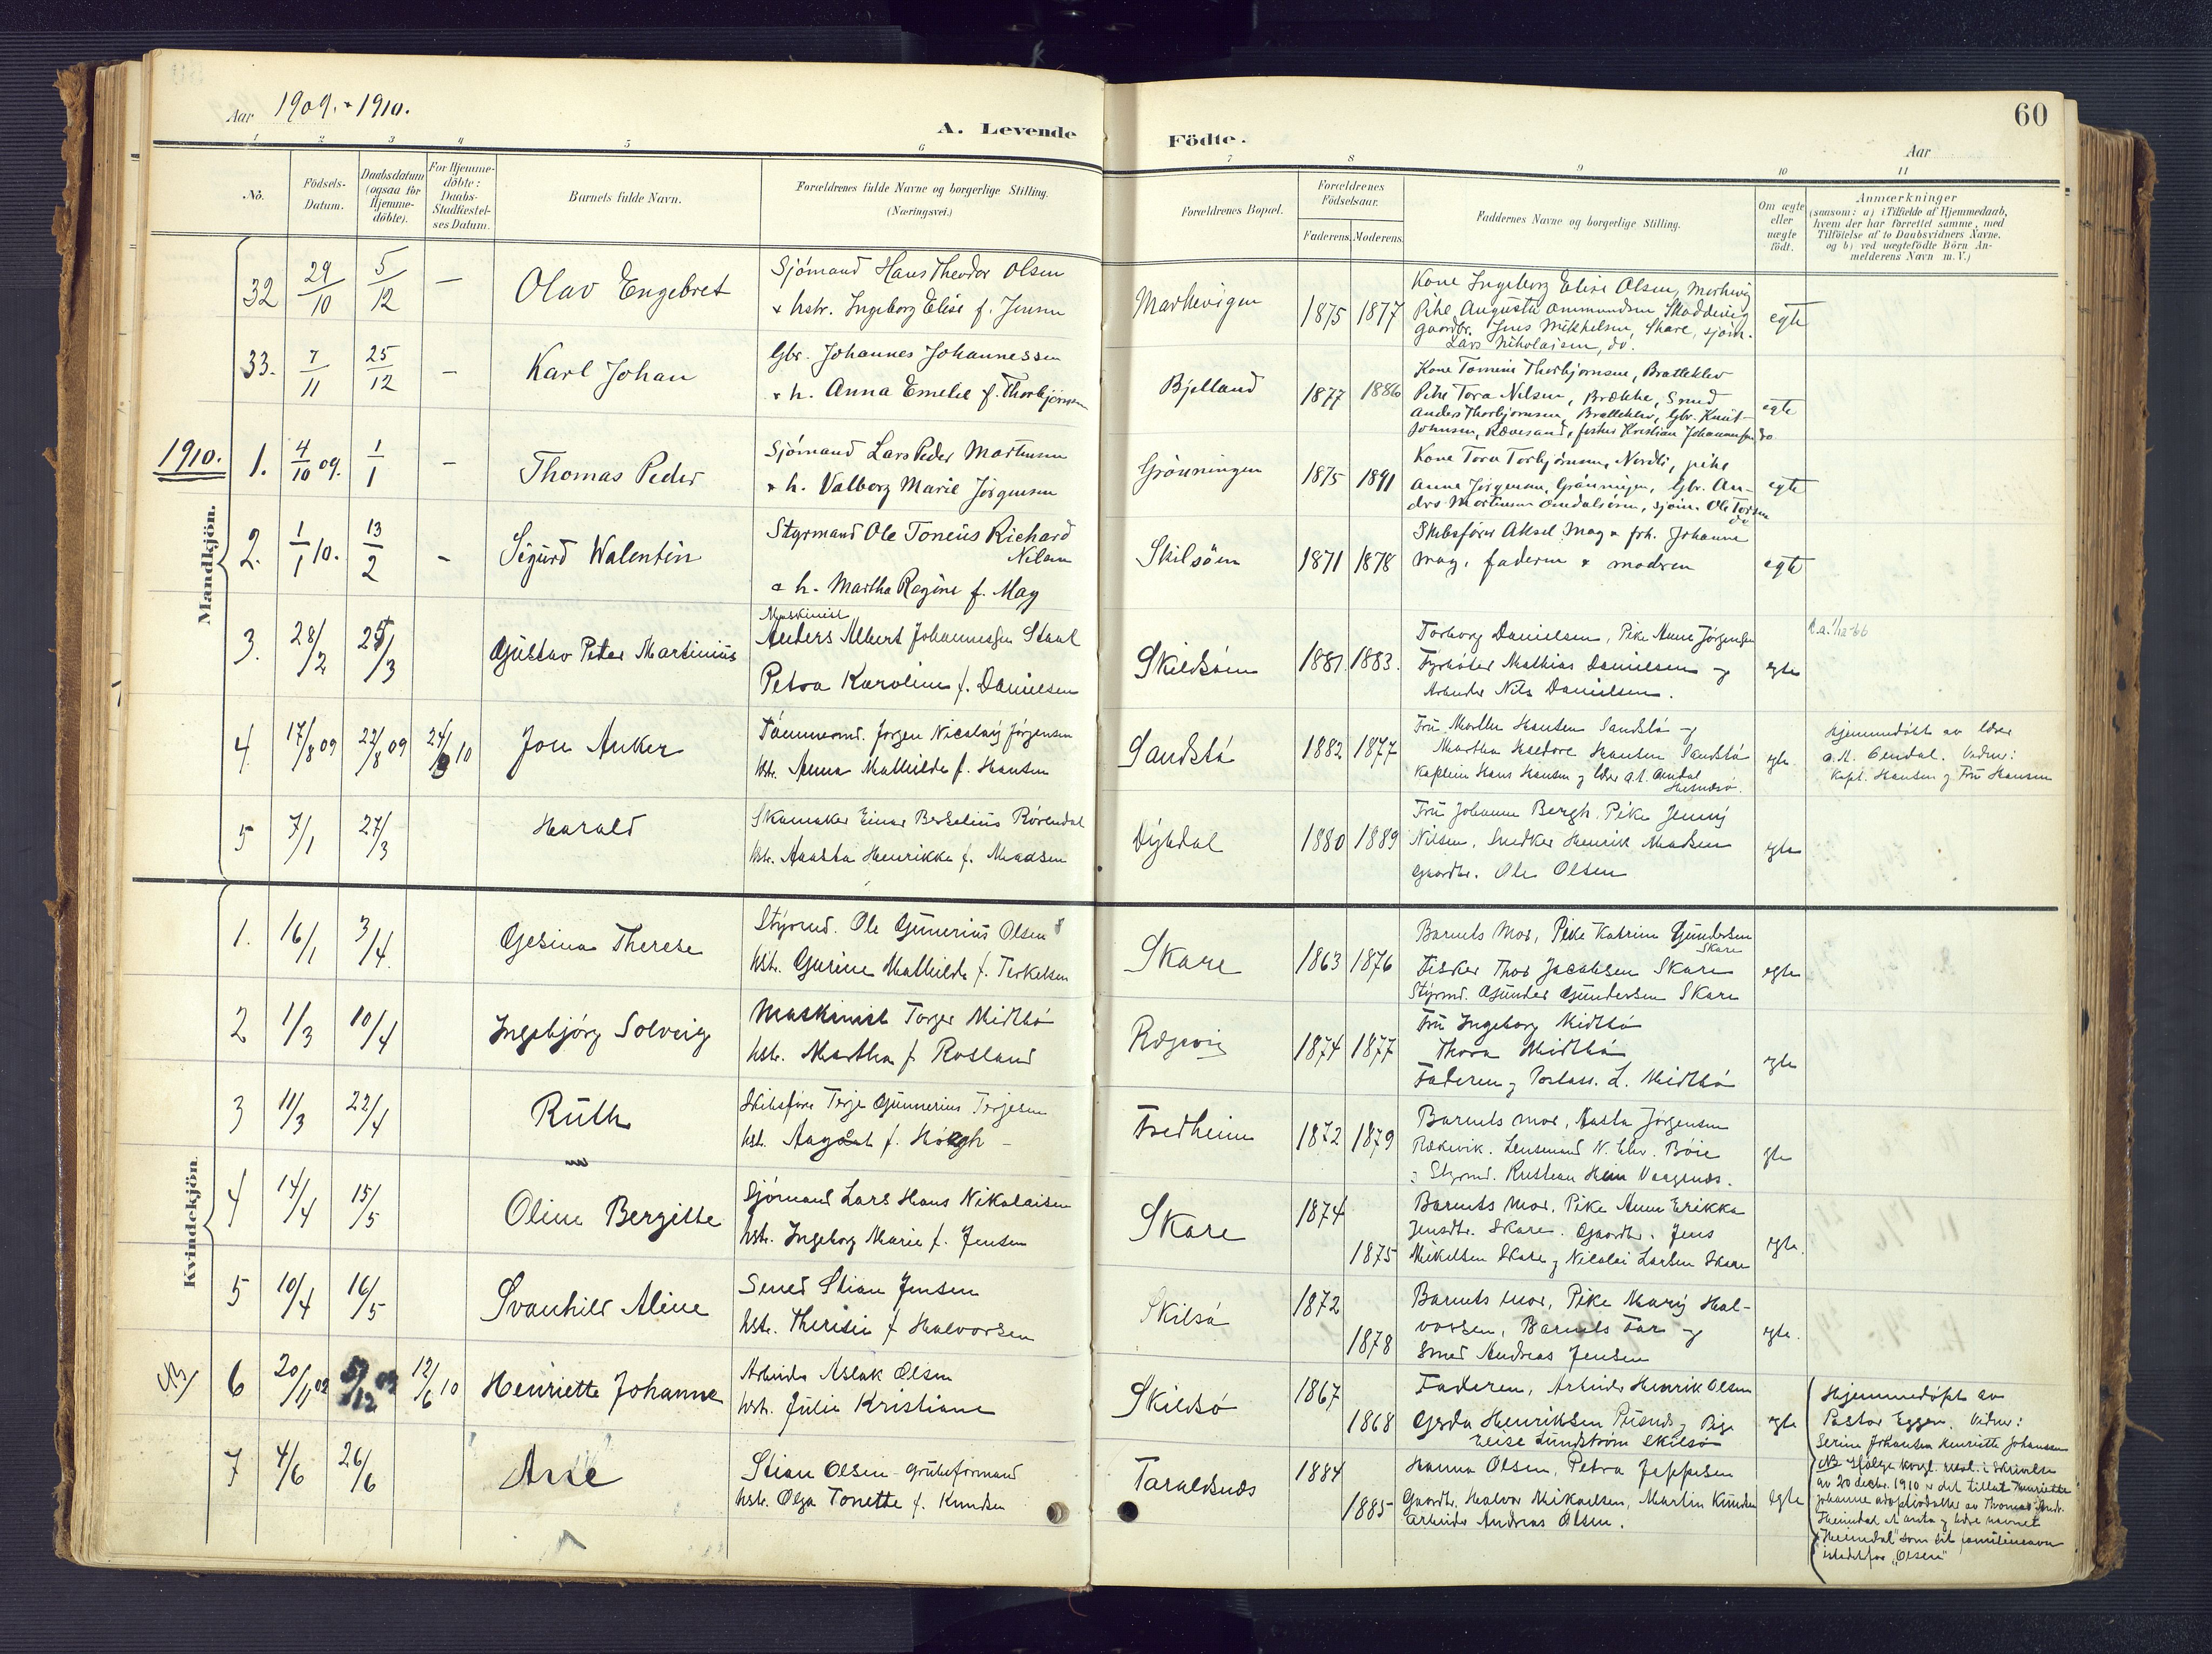 Aar 1909. - 1910.
A. Levende
Födte.
60
Aar
1 2 3 4 5 6 7 8 9 10 11
No.
Födsels-
Datum.
Daabsdatum
(ogsaa for
Hjemme-
döbte).
For Hjemme-
döbte:
Daabs-
Stadfæstel-
ses Datum.
Barnets fulde Navn.
Forældrenes fulde Navne og borgerlige Stilling.
(Næringsvei.)
Forældrenes Bopæl.
Forældrenes
Födselsaar.
Faderens. Moderens.
Faddernes Navne og borgerlige Stilling.
Om ægte
eller
uægte
födt.
Anmærkninger
(saasom: a) i Tilfælde af Hjemmedaab,
hvem der har forrettet samme, med
Tilföielse af to Daabsvidners Navne,
og b) ved uægtefödte Börn An-
melderens Navn m. V.)
Mandkjön.
32 29/10 5/12 — Olav Engebret
Sjómand Hans Theodor Olsen
+ hstr. Ingeborg Elise f. Jensen
1875 1877
Kone Ingeborg Elise Olsen,
Pike Augusta Ommundsen
gaardbr. Jens Mikkelsen, Skare, sjóm.
Lars Nikolaisen, do.
egte
33. 7/11 25/12 — Karl Johan
Gbr. Johannes Johannessen
+ h. Anna Emelie f. Thorbjörnsen
Bjelland 1877 1886
Kone Tomine Thorbjornsen, Bratteklev
Pike Tora Nilsen, Brække, Smed
Anders Thorbjornsen, Bratteklev, Gbr. Knut
Johnsen, Rævesand, fisker Kristian Johannessen do.
egte
1910. 1. 4/10 09. 1/1 — Thomas Peder
Sjómand Lars Peder Mortensen
+ h. Valborg Marie Jörgensen
Grönningen 1875 1891
Kone Tora Torbjörnsen, Nordli, pike
Anna Jörgensen, Grönningen, Gbr. An-
ders Mortensen Omdalsöen, sjöm. Ole
do
egte
2. 1/1 10. 13/2 - Sigurd Walentin
Styrmand Ole Toneus Richard
Nilsen
+ h. Martha Regine f. May
Skilsöen 1871 1878
Skibsförer Aksel May + frk. Johanne
May, faderen + moderen
egte
3. 28/2 25/3 Gustav Peter Martinius
Maskinist
Anders Albert Johannessen Staal
Petra Karoline f. Danielsen
Skildsöen 1881. 1883.
Torborg Danielsen, Pike Anne Jörgensen
Fyrböter Mathias Danielsen og
Arbeider Nils Danielsen.
egte
4. 17/8 09 22/8 09 10 Jon Anker
Tömmermd. Jörgen Nicolay Jörgensen
hstr. Anna Mathilde f. Hansen
Sandstö 1882 1877
Fru Marthe Hansen Sandstö og
Martha Isedore Hansen Sandstö
Kaptein Hans Hansen og lærer A. M. Omdal
Hisnesö.
egte
Hjemmedöbt av lærer
A. M. Omdal. Vidner:
Kapt. Hansen og Fru Hansen
5 7/1 27/3 Harald
Skomaker Einar Berselius Rörendal
hstr. Aasta Henrikke f. Madsen
Dydal 1880 1889
Fru Johanne Bergh, Pike Jenny
Nilsen, Snedker Henrik Madsen
Gaardbr. Ole Olsen
egte
Kvindekjön.
1. 16/1 3/4. Gesina Therese
Styrmd. Ole Gunerius Olsen &
hstr. Gurine Mathilde f. Terkelsen
Skare 1863 1876
Barnets Mor, Pike Katrine Gundersen
Skare
Fisker Thor Jacobsen Skare
Styrmd. Gunder Gundersen Skare
egte
2 1/3 10/4 Ingebjörg Solveig
Maskinist Torger Midtbö
hstr. Martha f. Rosland
1874 1877
Fru Ingeborg Midtbö
Thora Midtbö
Faderen og Postass. L. Midtbö
egte
3 11/3 22/4 Ruth
Skibsförer Terje Gunnerius Terjesen
hstr. Aagot f. Höegh -
Fredheim 1872 1879
Barnets mor, Aasta Jörgensen
Rækevik. Lensmand N. Chr. Böie
og Styrmd. Kristian Hein Vaagenes.
egte
4 14/4 15/5 Oline Bergitte
Sjömand Lars Hans Nikolaisen
hstr. Ingeborg Marie f. Jensen
Skare 1874 1875
Barnets Mor. Pike Anne Erikka
Jensdtr. Skare. Gaardbr. Jens
Mikelsen Skare og Nicolai Larsen Skare
egte.
5 10/4 16/5 Svanhild Aline
Smed Stian Jensen
hstr. Theresie f. Halvorsen
Skilsö 1872 1878
Barnets mor, Pike Mary Hal-
vorsen, Barnets Far og
Smed Andreas Jensen
egte.
NB/ 6 20/11 02 12/6 10 Henriette Johanne
Arbeider Aslak Olsen
hstr. Julie Kristiane
Skildsö 1867 1868
Faderen, Arbeider Henrik Olsen
Gerda Henriksen Pusnes, Pige
Elise Lundström Skilsö
egte
Hjemmedöpt av
Pastor Eggen. Vidner:
Serine Johansen Henriette Johannsen
NB Ifölge kongl. resol. i Skrivelse
av 20 decbr. 1910 er det tillat Henriette
Johanne adoptivdatter av Thomas Andr.
Heimdal at anta og bære navnet
"Heimdal" som sit familienavn
istedetfor "Olsen"
7 4/6 26/6 Ane
Stian Olsen grubeformand
hstr. Olga Tonette f. Knudsen
Taraldsnes 1884 1885
Hanna Olsen, Petra Jeppesen
Gaardbr. Halvor Mikaelsen, Martin Knudsen
Arbeider Andreas Olsen.
egte